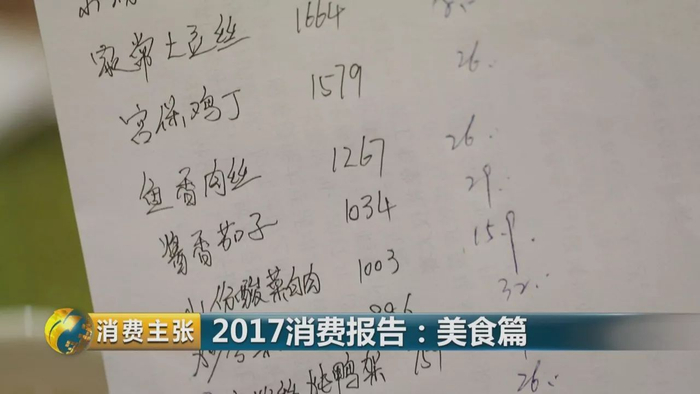 家常土豆丝 1664
宫保鸡丁 1579 26.
鱼香肉丝 1267 26.
酱香茄子 1034 29.
小份酸菜白肉 1003 15.9.
32.
炖鸭架 157
26.
消费主张 2017消费报告：美食篇